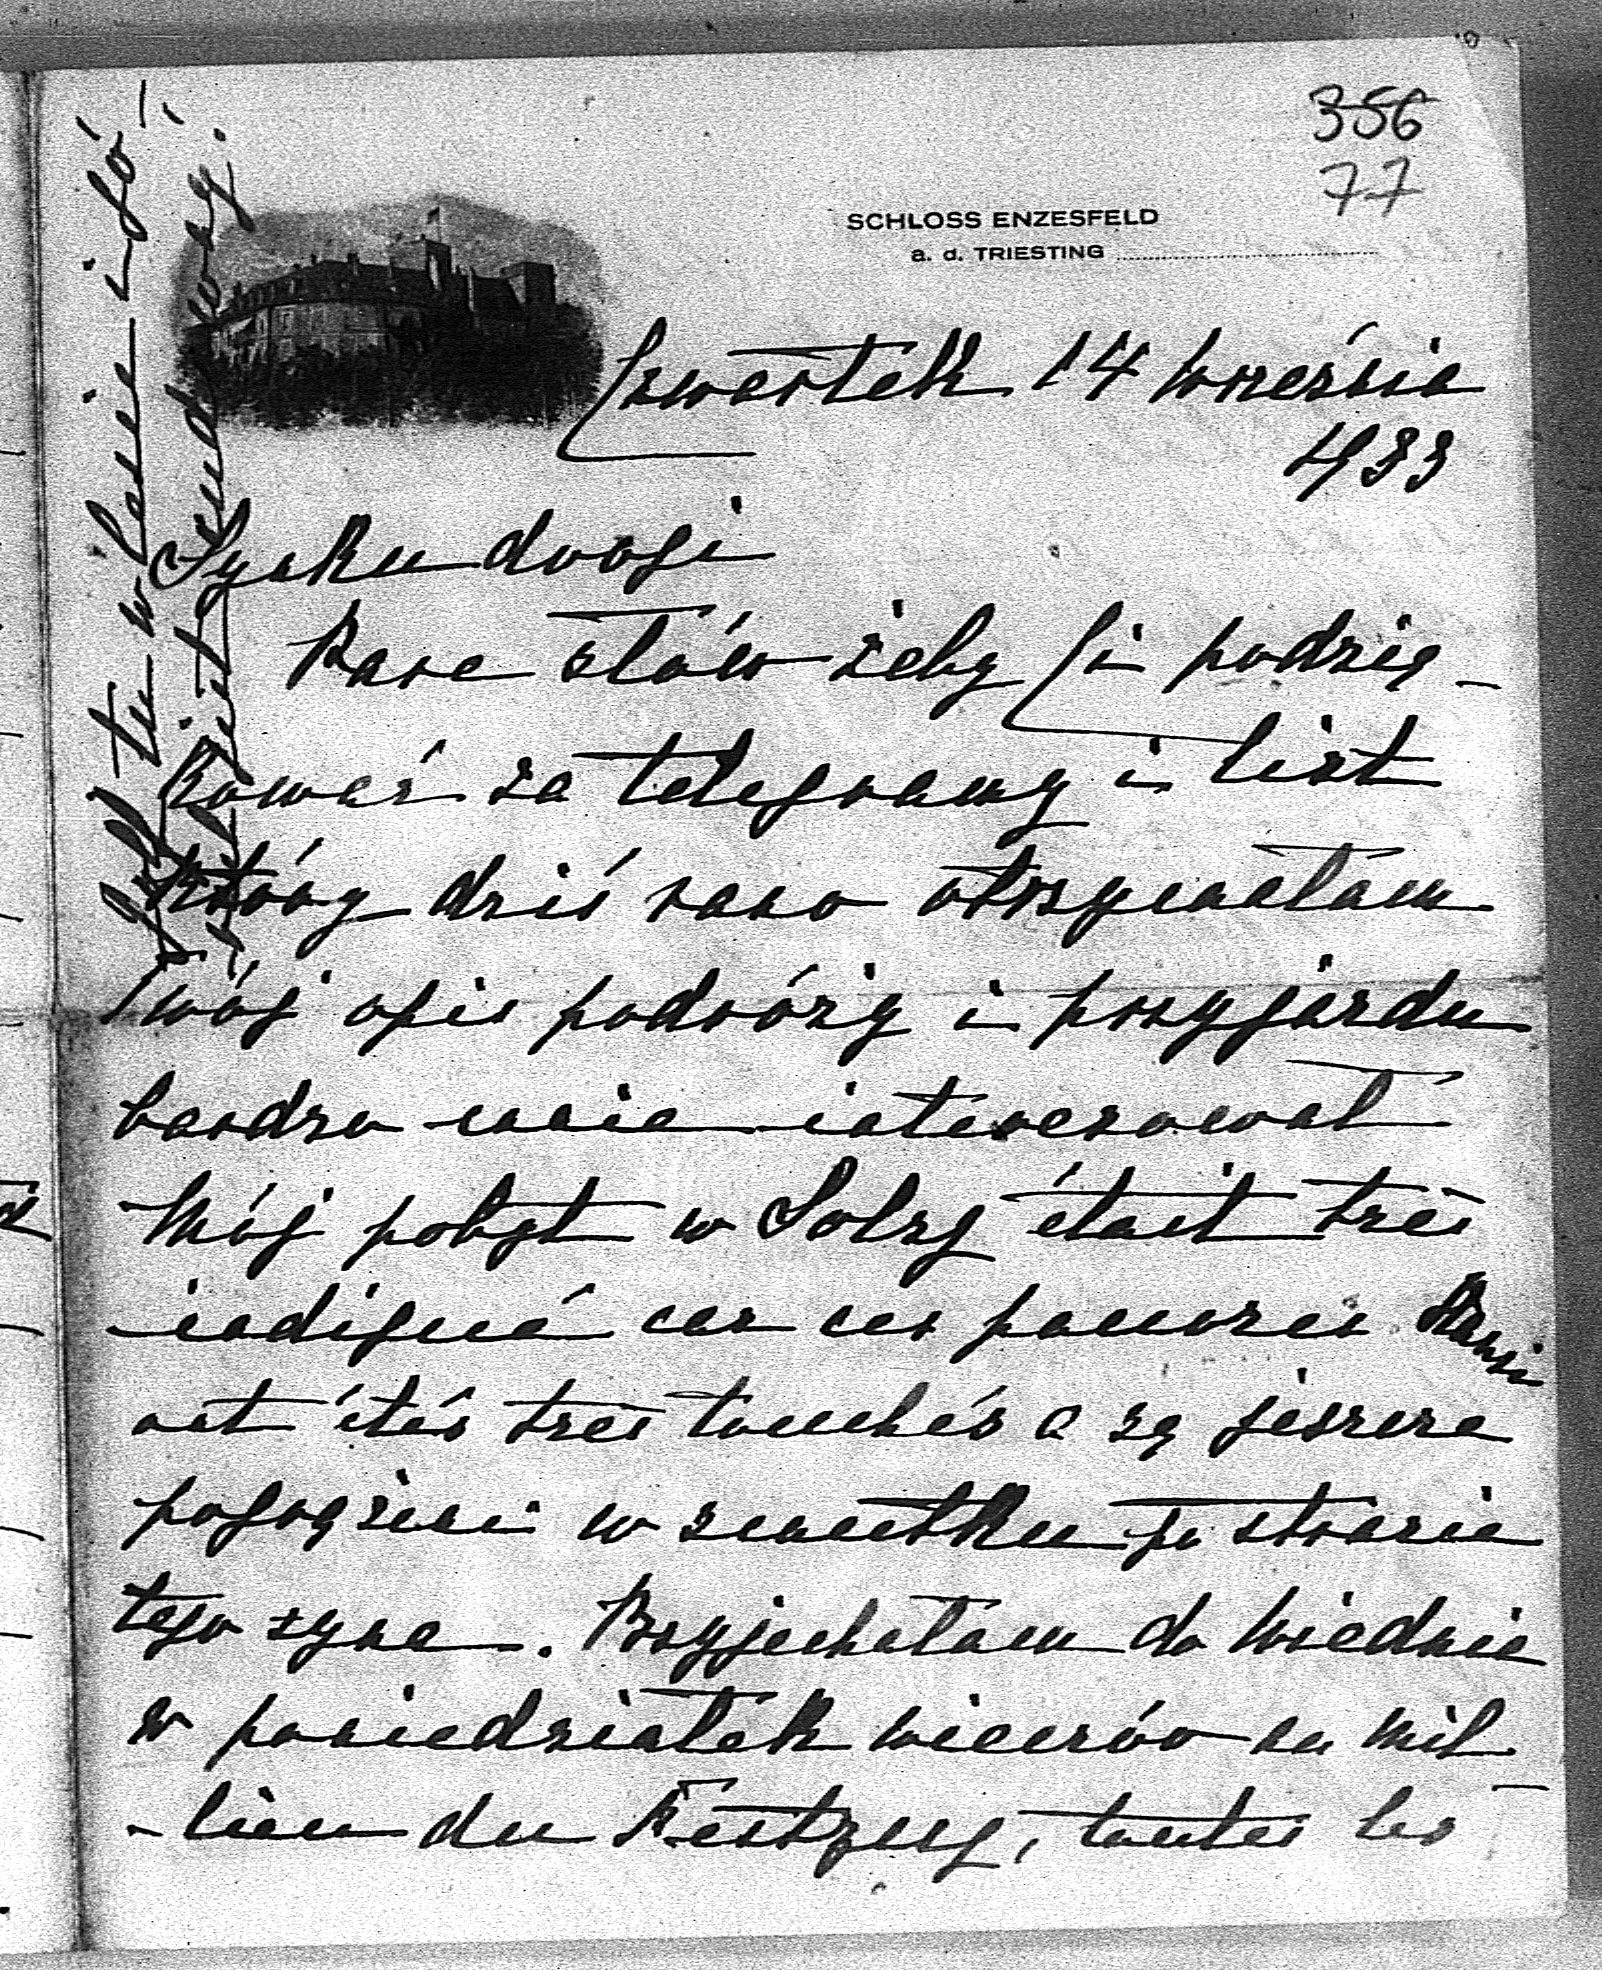 356
77
SCHLOSS ENZESFELD
a. d. TRIESTING
Czwartek 14 września
933
Synku drogi
Parę słów żeby Ci podzię-
kować za telegramy i list
który dziś rano otrzymałam
Twój opis podróży i przyjazdu
bardzo mnie interesował
Mój pobyt w Solzy était très
indiqué car ces pauvres
ont étés très touchés a są jeszcze
pogrążeni w smutku po stracie
tego syna. Przyjechałam do Wiednia
w poniedziałek wieczór au mil-
-lieu du Festzug, toutes les